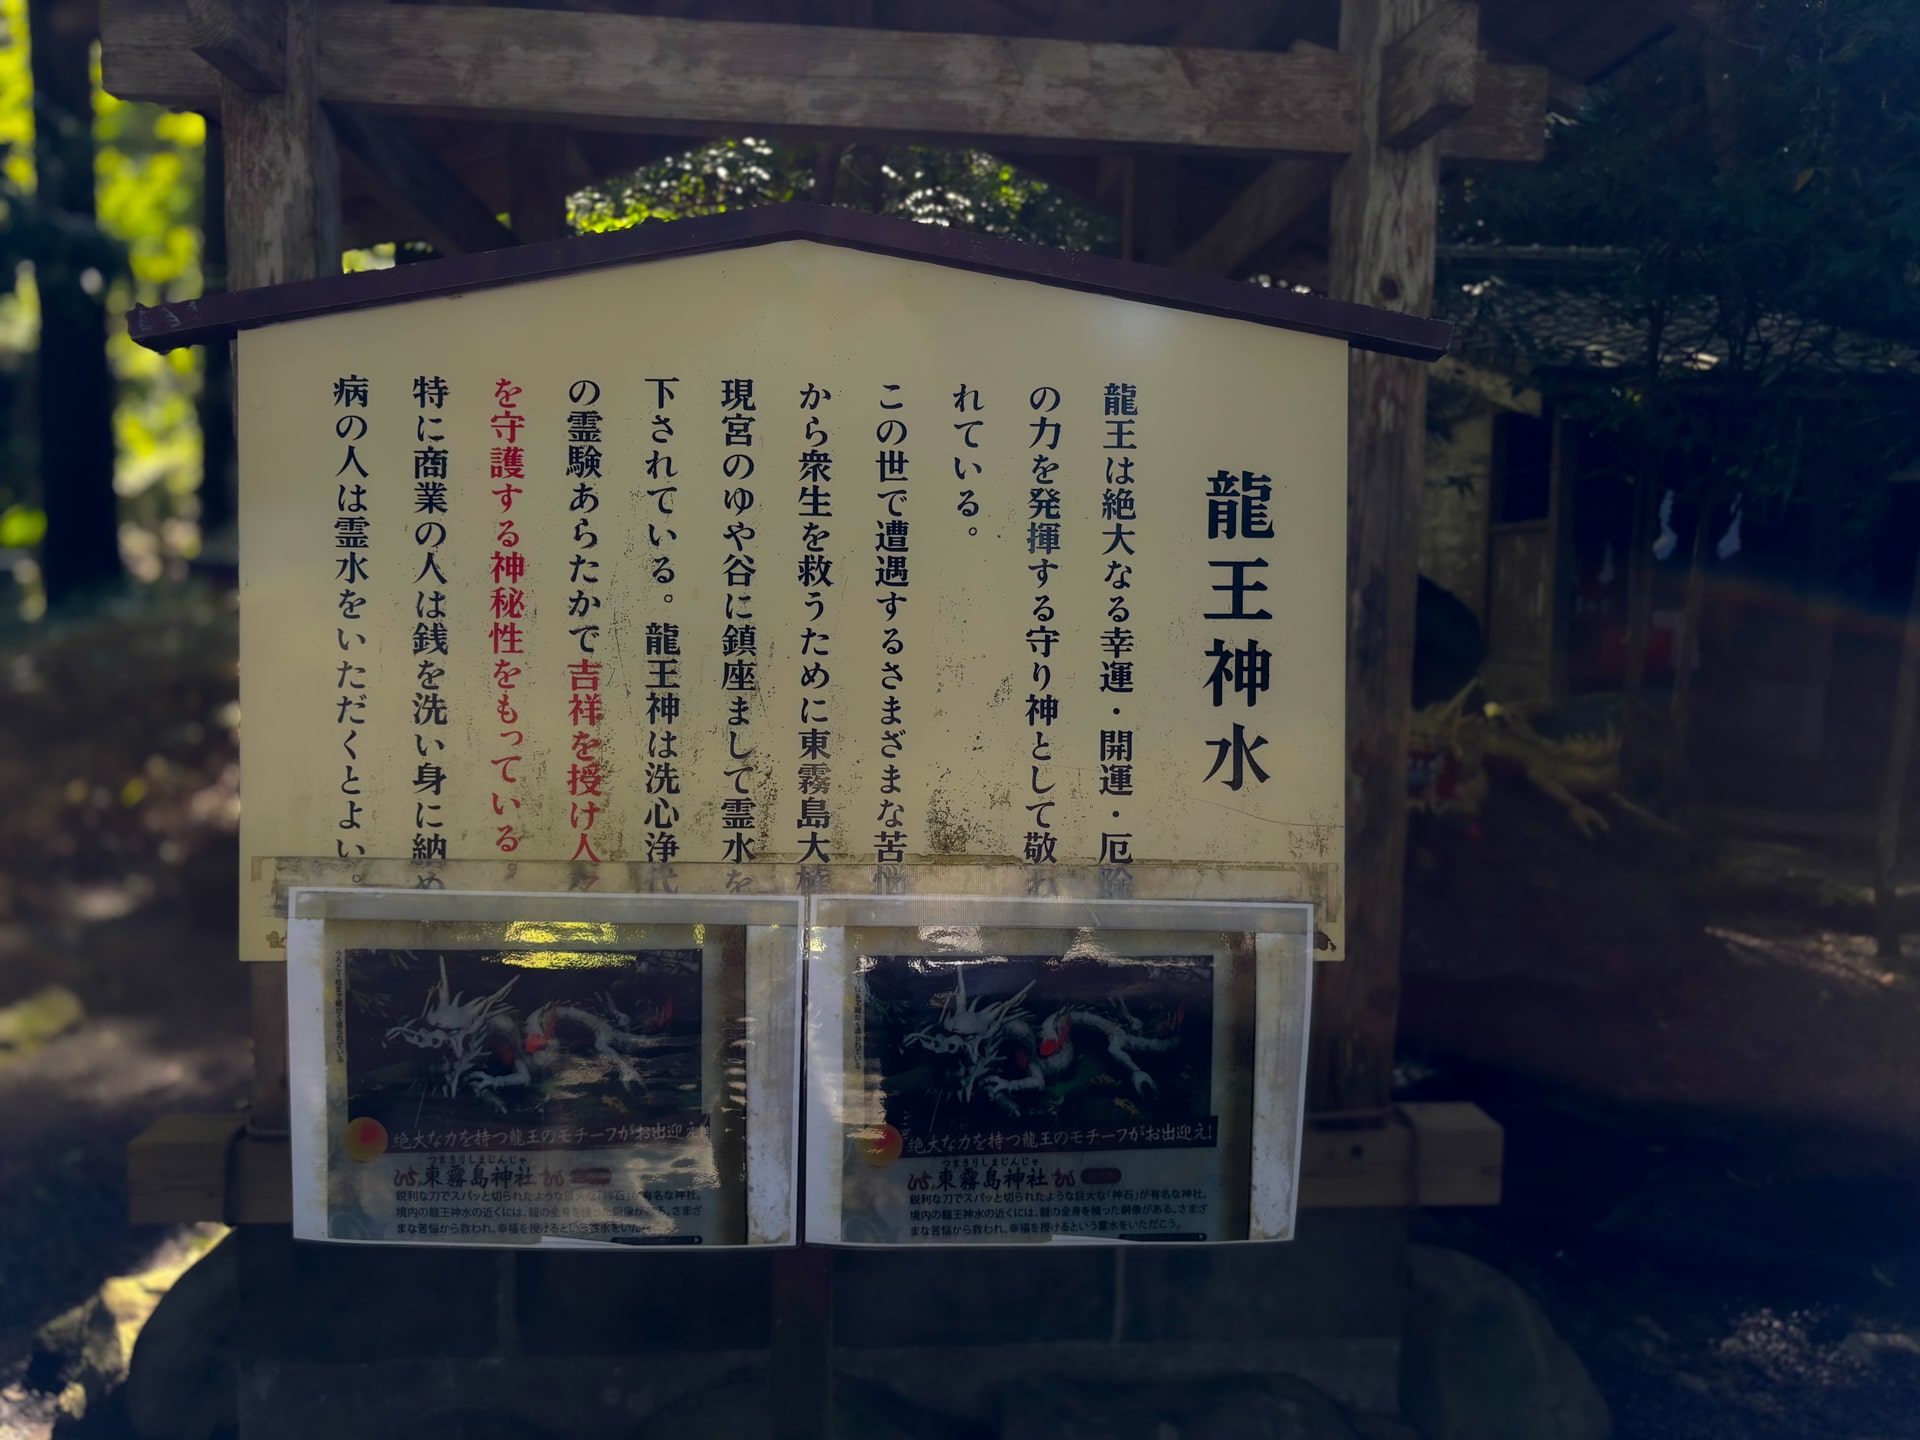 龍王神水
龍王は絶大なる幸運・開運・厄除
の力を発揮する守り神として敬わ
れている。
この世で遭遇するさまざまな苦悩
から衆生を救うために東霧島大権
現宮のゆや谷に鎮座まして霊水を
下されている。龍王神は洗心浄化
の霊験あらたかで吉祥を授け人々
を守護する神秘性をもっている。
特に商業の人は銭を洗い身に納め
病の人は霊水をいただくとよい。
絶大な力を持つ龍王のモチーフがお出迎え!
つまきりしまじんじゃ
東霧島神社
鋭利な刀でスパッと切られたような巨大な「神石」が有名な神社。
境内の龍王神水の近くには、龍の全身を模った銅像がある。さまざ
まな苦悩から救われ、幸福を授けるという霊水をいただ
絶大な力を持つ龍王のモチーフがお出迎え!
つまきりしまじんじゃ
東霧島神社
鋭利な刀でスパッと切られたような巨大な「神石」が有名な神社。
境内の龍王神水の近くには、龍の全身を模った銅像がある。さまざ
まな苦悩から救われ、幸福を授けるという霊水をいただこう。